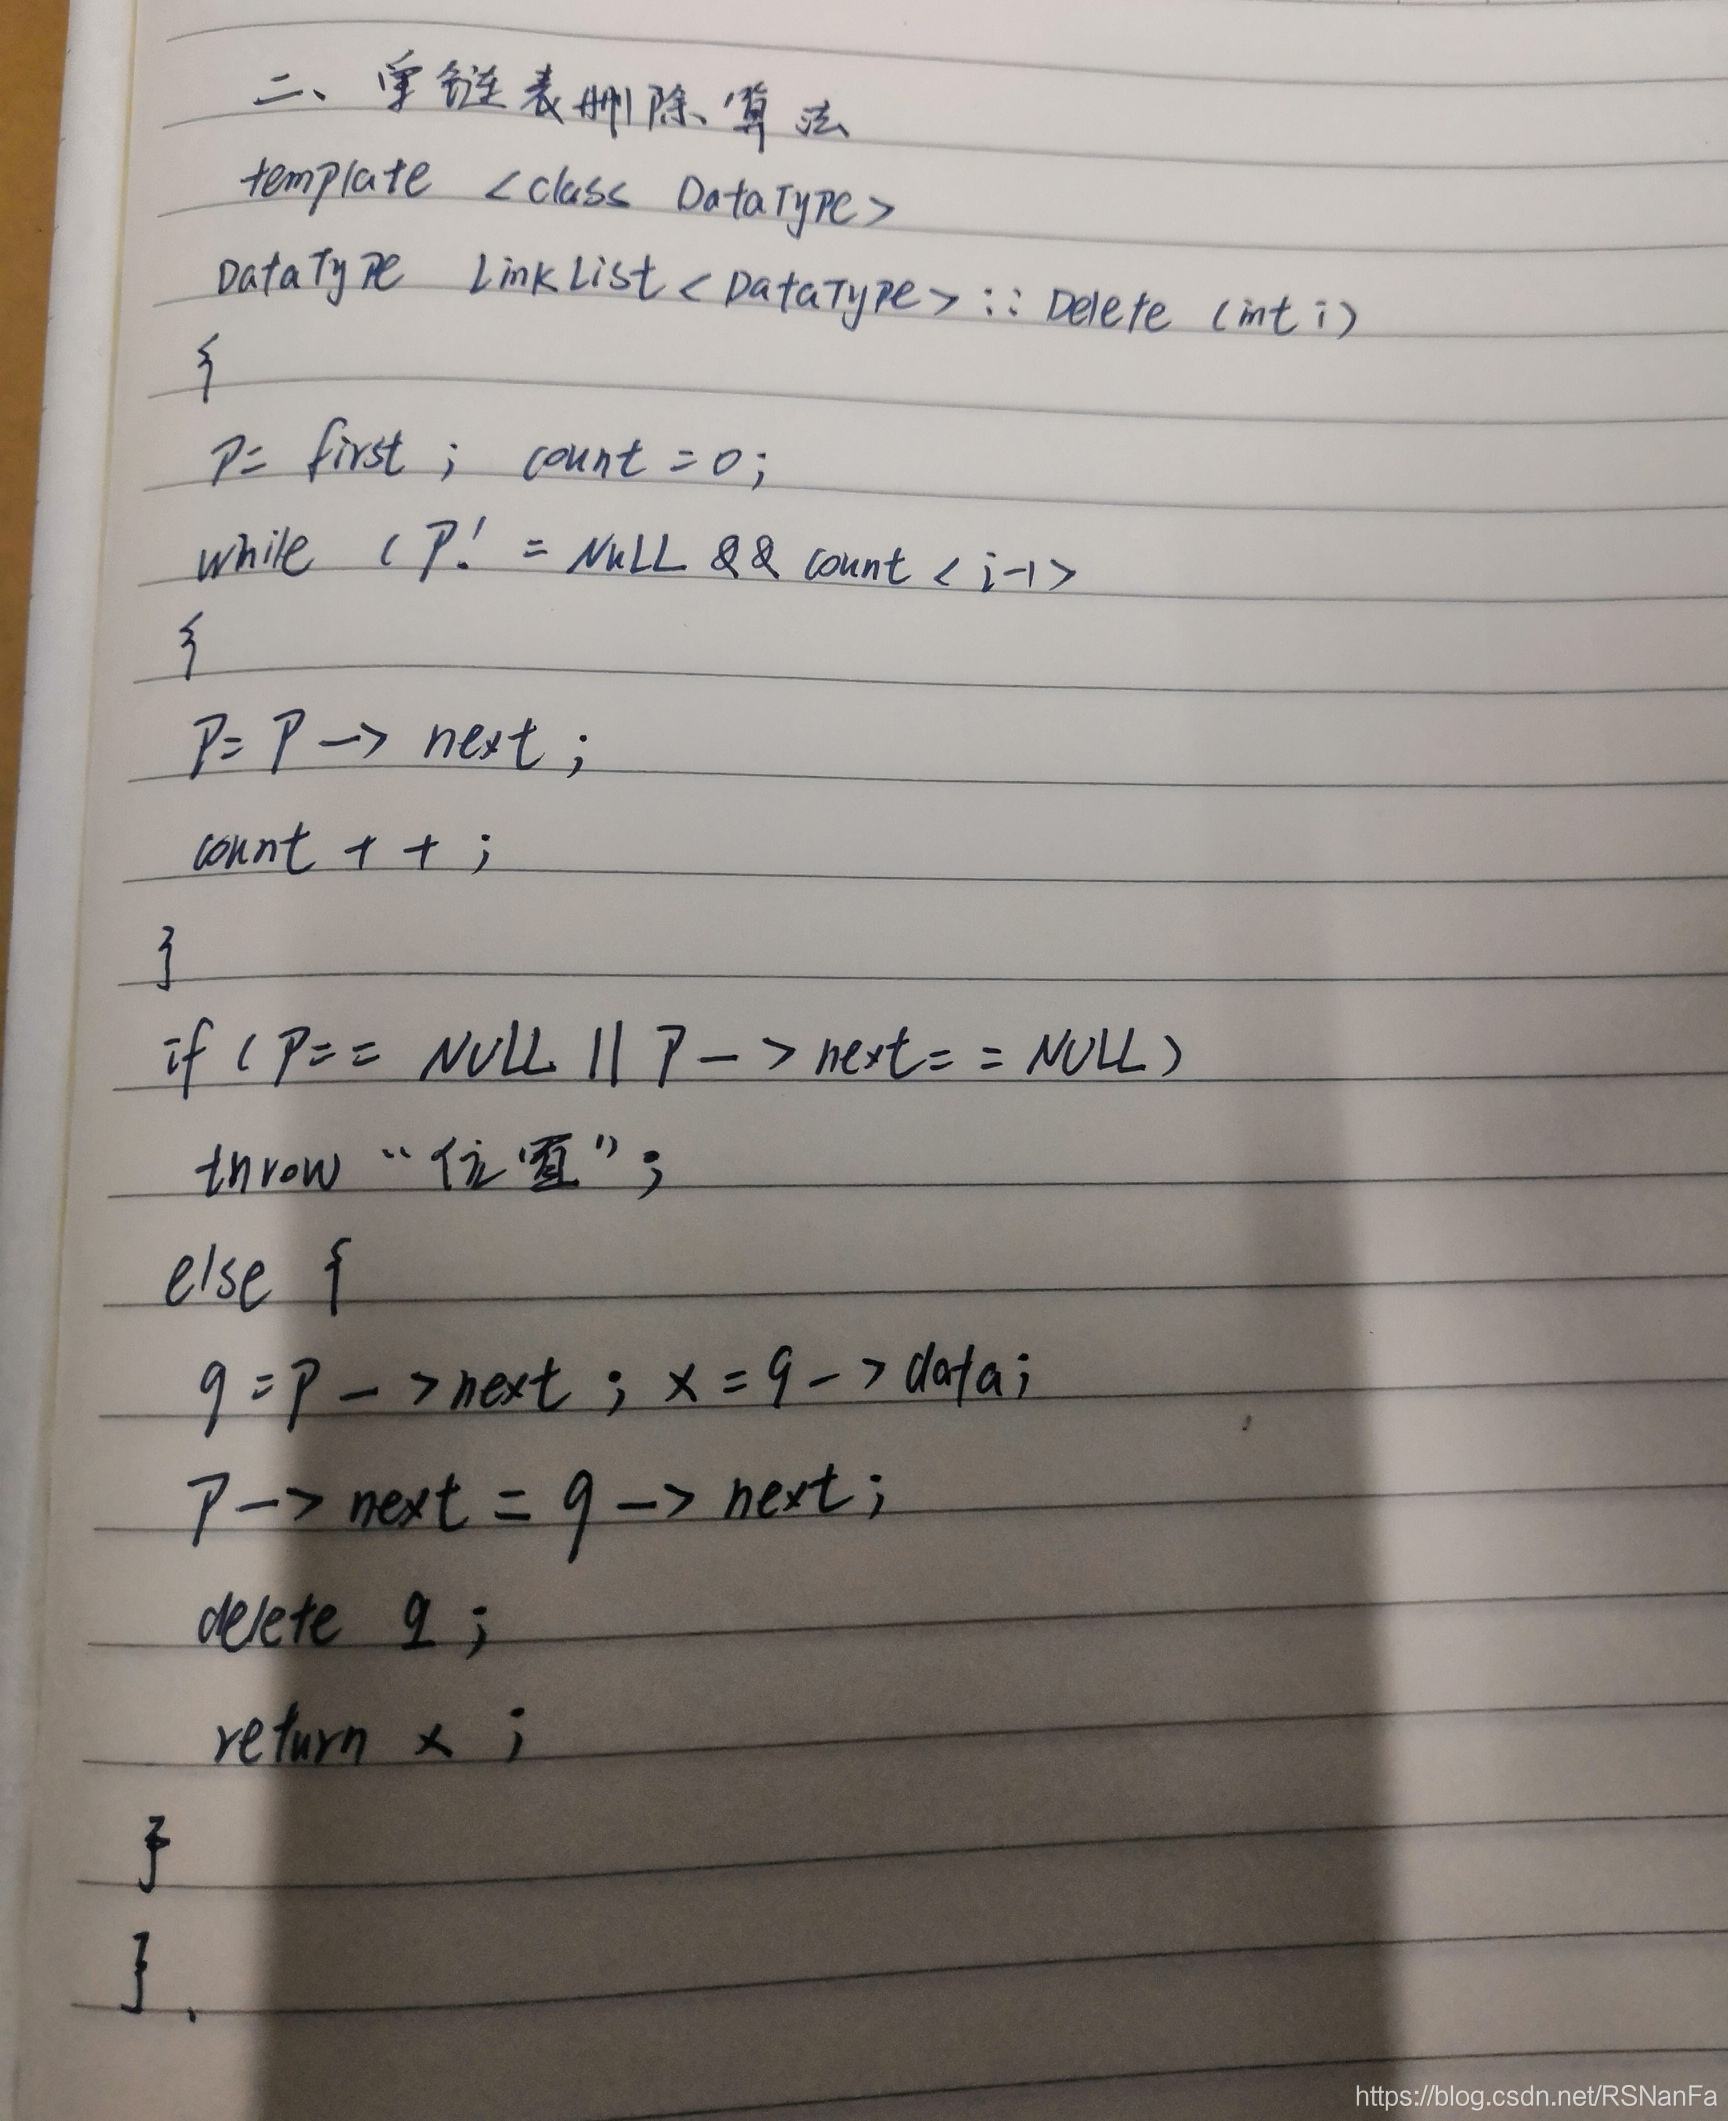 二、单链表删除算法
template <class DataType>
DataType LinkList<DataType>::Delete (int i)
{
P= first ; count =0;
while (P! = NULL && count < i-1>
{
P= P -> next ;
count + + ;
}
if (P== NULL || P - > next= = NULL)
throw “位置”;
else {
q =P - >next ; x =q - > data;
P -> next = q -> next ;
delete q ;
return x ;
}
}.
https://blog.csdn.net/RSNanFa